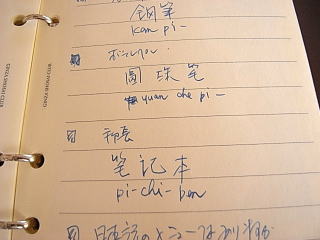 鋼筆
kan pi-
ボールペン
圓珠笔
yuan che pi-
手帳
笔记本
pi-chi-ben
日本語のメニューはありますか